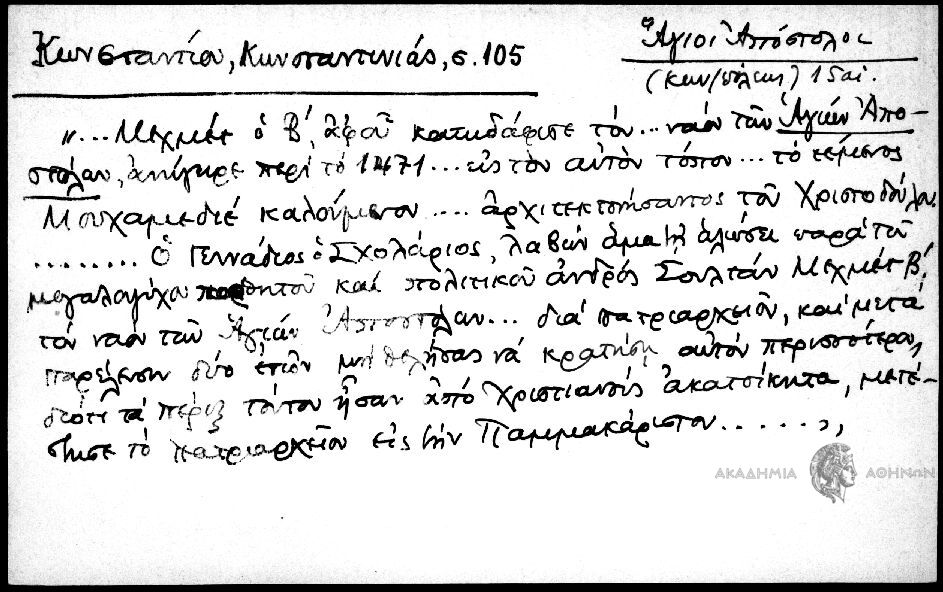 Κωνσταντίου, Κωνσταντινιάς, σ. 105
Ἅγιοι Ἀπόστολοι
(Κων/πόλεως) 15 αἰ.
"... Μεχμέτ ὁ Β΄, ἀφοῦ κατηδάφισε τόν .. ναόν τῶν Ἁγίων Ἀπο-
στόλων, ἀνήγειρε περί τό 1471 ... εἰς τόν αὐτόν τόπον ... τό τέμενος
Μουχαμεδιέ καλούμενον .... ἀρχιτεκτονήσαντος τοῦ Χριστοδούλου
........ Ὁ Γεννάδιος ὁ Σχολάριος, λαβών ἅμα τῇ ἁλώσει παρά τοῦ
μεγαλοψύχου καί πολιτικοῦ ἀνδρός Σουλτάν Μεχμέτ Β΄,
τόν ναόν τῶν Ἁγίων Ἀποστόλων... διά πατριαρχεῖον, καί μετά
παρέλευσιν δύο ἐτῶν μή θελήσας νά κρατήσῃ αὐτόν περισσότερον,
διότι τά πέριξ τούτου ἦσαν ἀπό Χριστιανούς ἀκατοίκητα, μετέ-
στησε τό πατριαρχεῖον εἰς τήν Παμμακάριστον ......"
ΑΚΑΔΗΜΙΑ ΑΘΗΝΩΝ